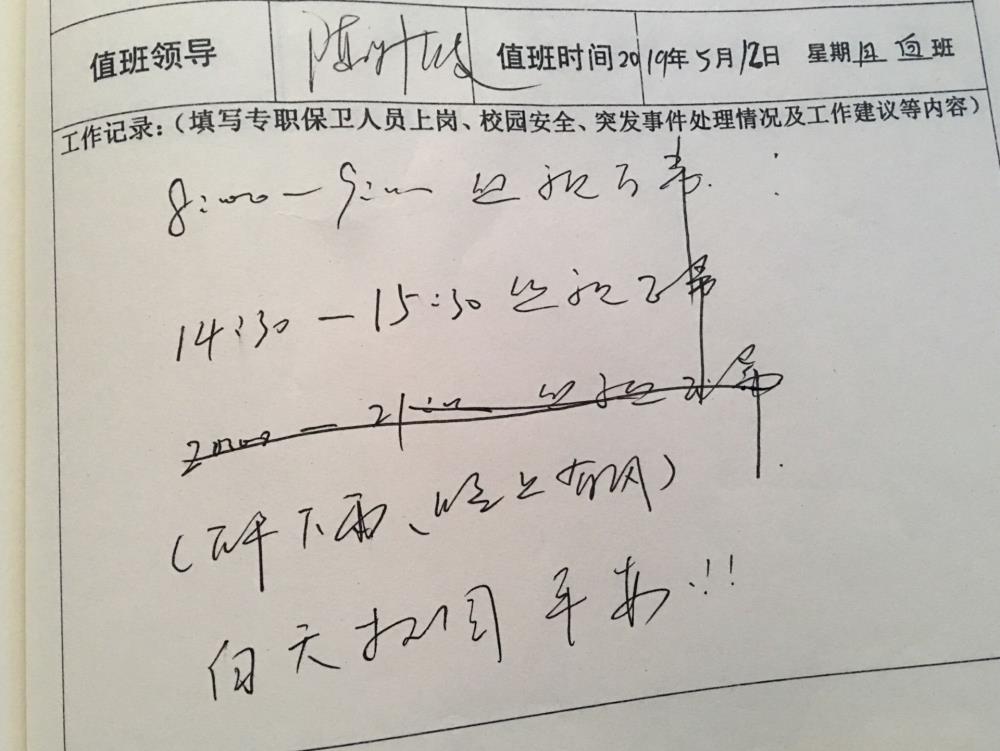 值班领导 值班时间2019年5月12日 星期日 白班
工作记录：（填写专职保卫人员上岗、校园安全、突发事件处理情况及工作建议等内容）
8:00—9:00 巡视正常
14:30—15:30 巡视正常
20:00—21:00 巡视正常
（下雨、晚上有风）
白天校园平安！！